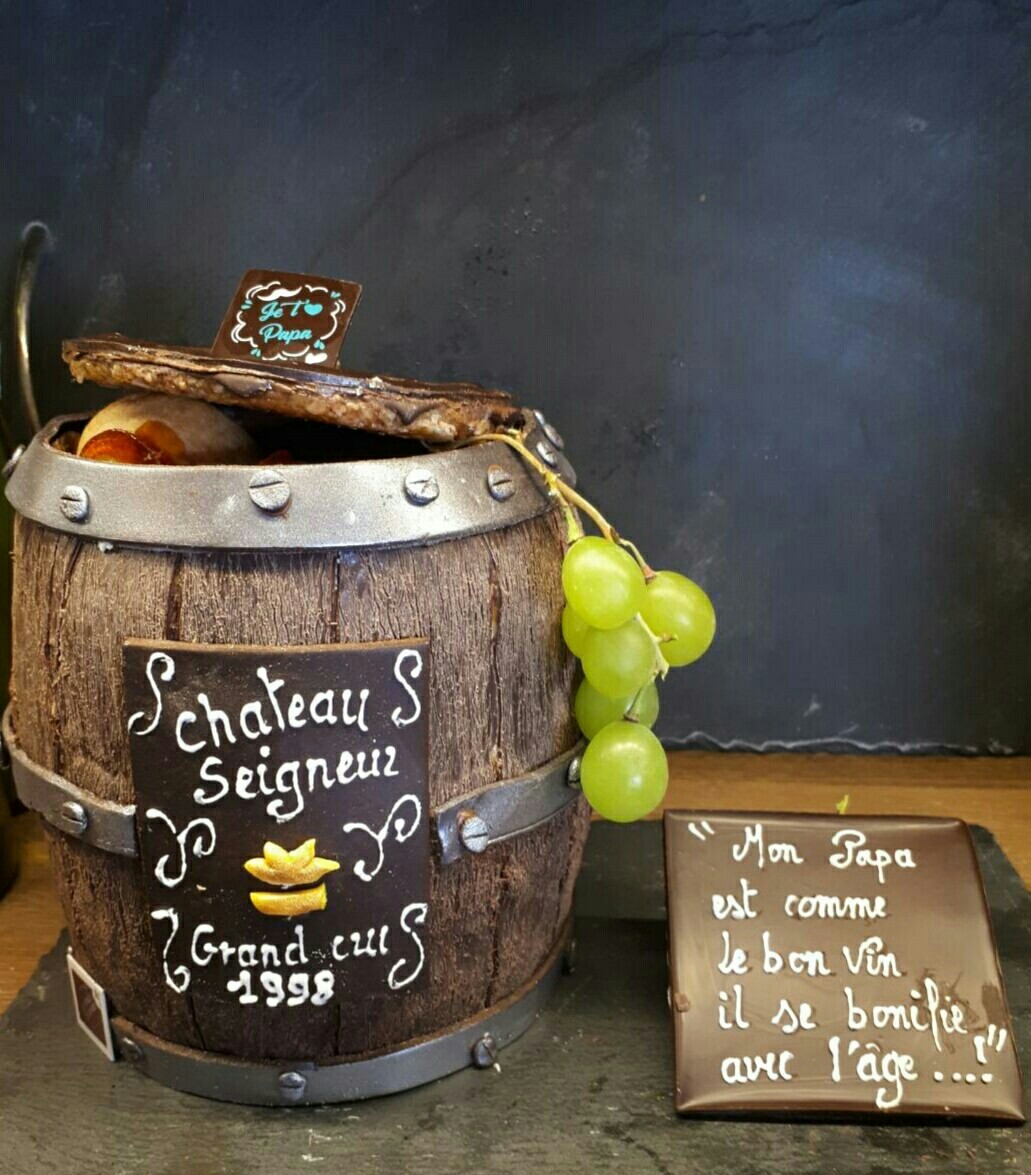 Je t'
Papa
chateau
Seigneur
Grand cru
1998
" Mon Papa
est comme
le bon vin
il se bonifie
avec l'âge ....!"